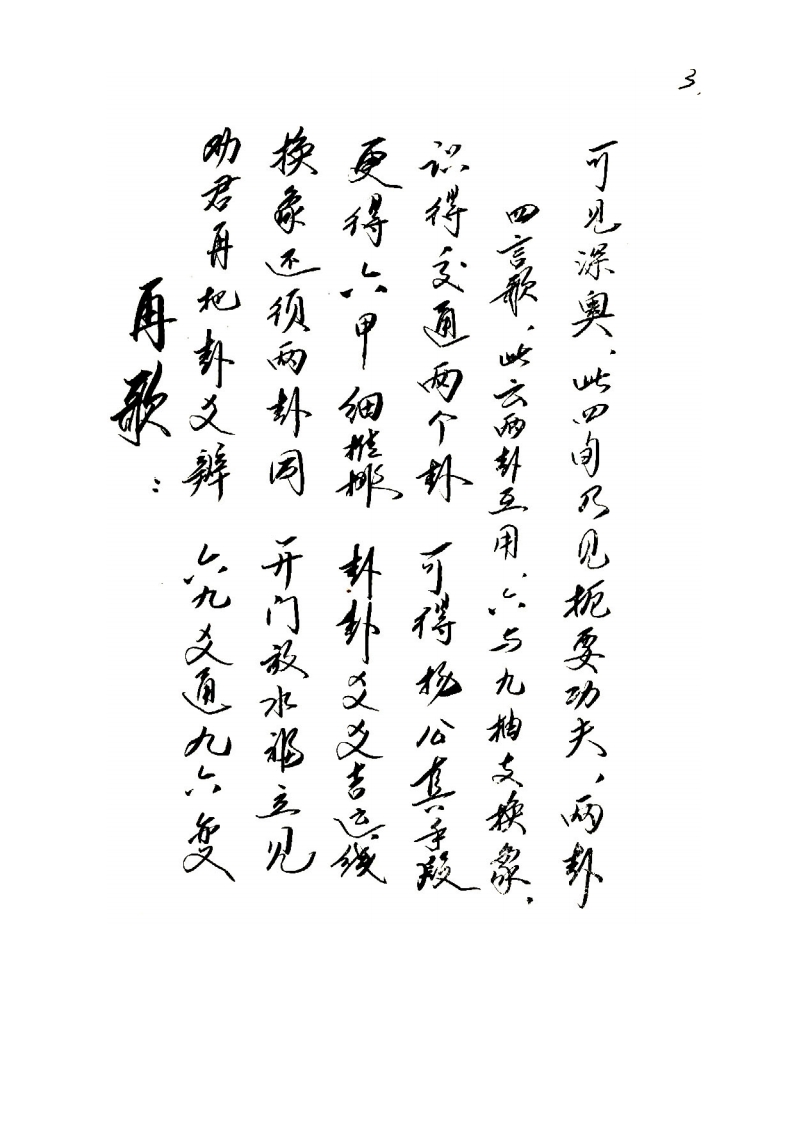 3.
可见深奥、此四句乃见扼要功夫、两卦
四言歌、此云两卦互用、六与九抽支换象、
识得交通两个卦 可得杨公真手段
更得六甲细推排 卦卦爻爻吉线
换象还须两卦同 开门放水福立见
劝君再把卦爻辨 六九爻通九六变
再歌：